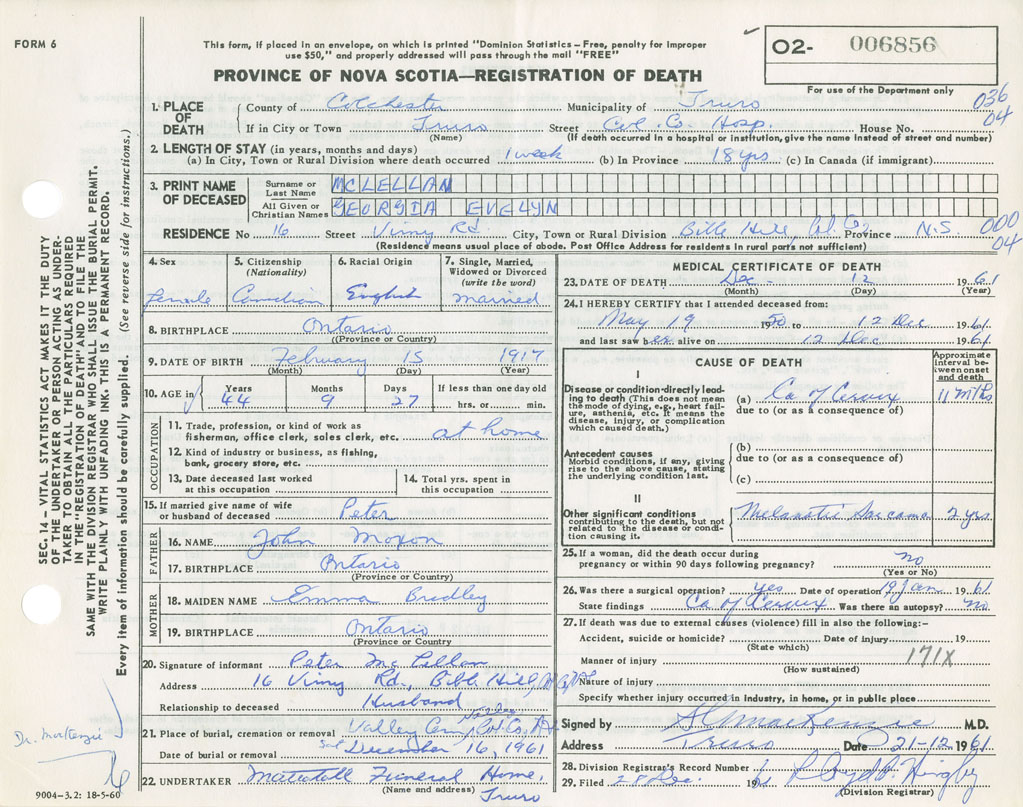 FORM 6
This form, if placed in an envelope, on which is printed "Dominion Statistics – Free, penalty for improper
use $50," and properly addressed will pass through the mail "FREE"
PROVINCE OF NOVA SCOTIA—REGISTRATION OF DEATH
02- 006856
For use of the Department only
036
04
1. PLACE OF DEATH
County of Colchester Municipality of Truro
If in City or Town Truro Street Col. Co. Hosp House No.
(Name) (If death occurred in a hospital or institution, give the name instead of street and number)
2. LENGTH OF STAY (in years, months and days)
(a) In City, Town or Rural Division where death occurred 1 week (b) In Province 18 yrs (c) In Canada (if immigrant)
3. PRINT NAME OF DECEASED
Surname or Last Name MCLELLAN
All Given or Christian Names GEORGIA EVELYN
RESIDENCE No 16 Street Vimy Rd. City, Town or Rural Division Bible Hill, Col. Co, Province N.S. 000
04
(Residence means usual place of abode. Post Office Address for residents in rural parts not sufficient)
4. Sex
female
5. Citizenship (Nationality)
Canadian
6. Racial Origin
English
7. Single, Married, Widowed or Divorced (write the word)
married
8. BIRTHPLACE Ontario
(Province or Country)
9. DATE OF BIRTH February 15 1917
(Month) (Day) (Year)
10. AGE in
Years 44
Months 9
Days 27
If less than one day old
hrs. or min.
OCCUPATION
11. Trade, profession, or kind of work as
fisherman, office clerk, sales clerk, etc. at home
12. Kind of industry or business, as fishing,
bank, grocery store, etc.
13. Date deceased last worked
at this occupation
14. Total yrs. spent in
this occupation
15. If married give name of wife
or husband of deceased Peter
FATHER
16. NAME John Moxon
17. BIRTHPLACE Ontario
(Province or Country)
MOTHER
18. MAIDEN NAME Emma Bradley
19. BIRTHPLACE Ontario
(Province or Country)
20. Signature of informant Peter McLellan
Address 16 Vimy Rd., Bible Hill,
Relationship to deceased Husband
21. Place of burial, cremation or removal Valley Cem, Col. Co, NS
Date of burial or removal Sat December 16, 1961
22. UNDERTAKER Mattatall Funeral Home,
(Name and address) Truro
9004-3.2: 18-5-60
MEDICAL CERTIFICATE OF DEATH
23. DATE OF DEATH Dec. 12 1961
(Month) (Day) (Year)
24. I HEREBY CERTIFY that I attended deceased from:
May 19 1950 to 12 Dec 1961
and last saw her alive on 12 Dec 1961
CAUSE OF DEATH
Approximate interval between onset and death
I
Disease or condition directly leading to death (This does not mean the mode of dying, e.g., heart failure, asthenia, etc. It means the disease, injury, or complication which caused death.)
(a) Ca of Cervix 11 mths
due to (or as a consequence of)
Antecedent causes
Morbid conditions, if any, giving rise to the above cause, stating the underlying condition last.
(b)
due to (or as a consequence of)
(c)
II
Other significant conditions
contributing to the death, but not related to the disease or condition causing it.
Melanotic Sarcoma 2 yrs
25. If a woman, did the death occur during
pregnancy or within 90 days following pregnancy? no
(Yes or No)
26. Was there a surgical operation? yes Date of operation 19 Jan 1961
State findings Ca of Cervix Was there an autopsy? no
27. If death was due to external causes (violence) fill in also the following:–
Accident, suicide or homicide? Date of injury 19
(State which)
171X
Manner of injury
(How sustained)
Nature of injury
Specify whether injury occurred in industry, in home, or in public place
Signed by MacKenzie M.D.
Address Truro Date 21-12 1961
28. Division Registrar's Record Number
29. Filed 28 Dec. 1961
(Division Registrar)
SEC. 14 – VITAL STATISTICS ACT MAKES IT THE DUTY
OF THE UNDERTAKER OR PERSON ACTING AS UNDER-
TAKER TO OBTAIN ALL THE PARTICULARS REQUIRED
IN THE "REGISTRATION OF DEATH" AND TO FILE THE
SAME WITH THE DIVISION REGISTRAR WHO SHALL ISSUE THE BURIAL PERMIT.
WRITE PLAINLY WITH UNFADING INK. THIS IS A PERMANENT RECORD.
Every item of information should be carefully supplied. (See reverse side for instructions.)
Dr. MacKenzie